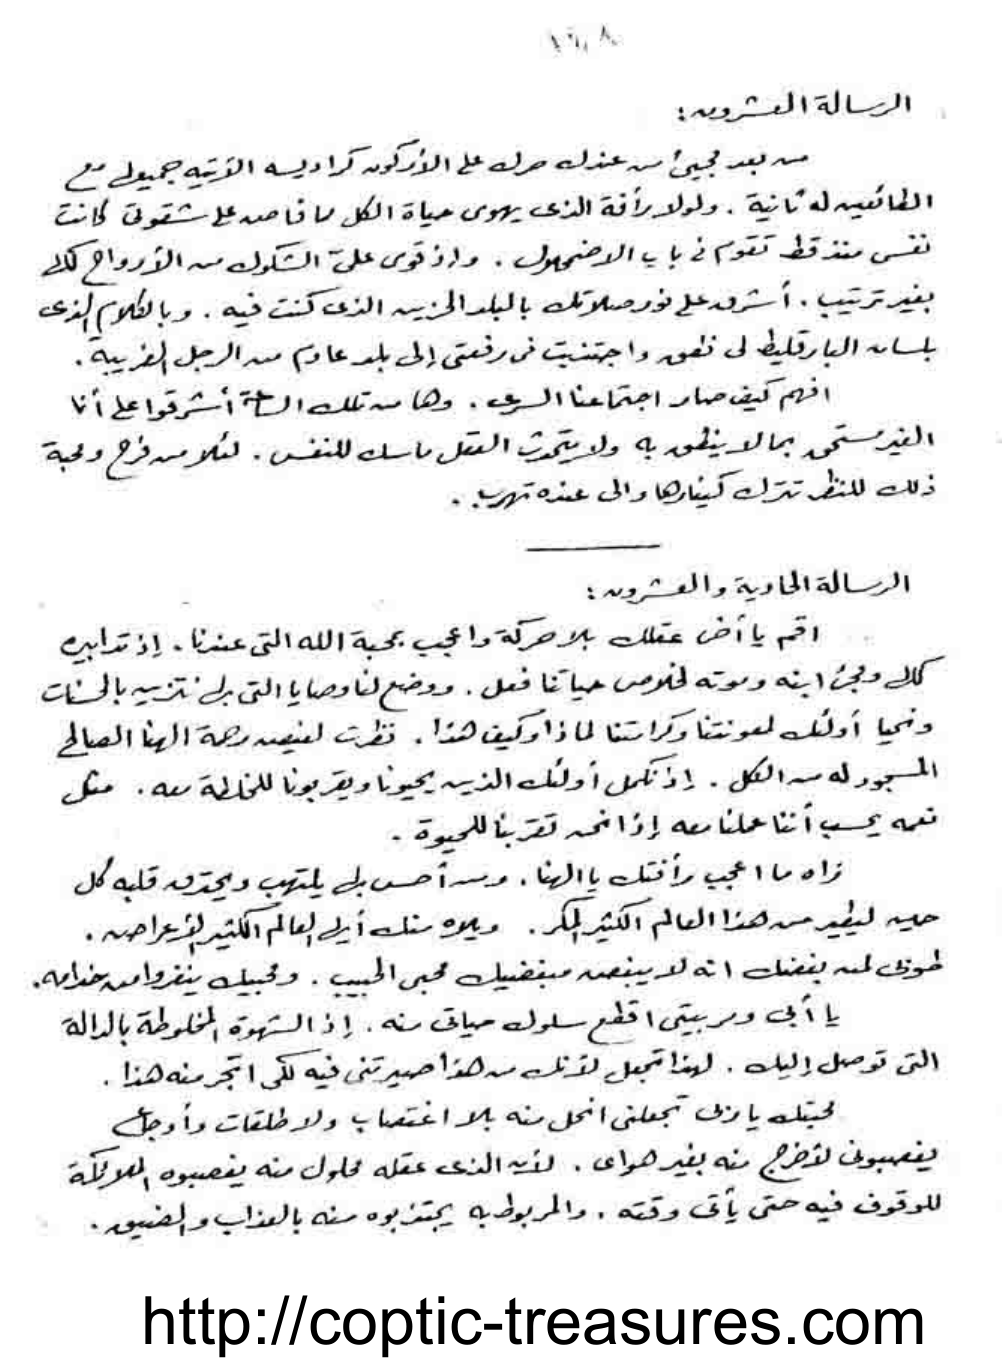 ١٦٠٨
الرسالة العشرون :
من بعد مجيئ من عندك حرك على الأركون كراديس القرتيه جميعاً مع
الطائعين له ثانية . ولولا رأفة الذى يهوى حياة الكل مما فاض على شقوتى كانت
نفسى منذ قط تقوم فى باب الاضمحلال . وإذ قوى علىّ الشكوك من الأرواح
بغير ترتيب . أشرق على نور صلاتك بالبلد الحزين الذى كنت فيه . وبالكلام الذى
بلسان البارقليط لى نطق واجتذبت فى رفعتى إلى بلد عادم من الرجل الغريبة .
افهم كيف صار اجتماعنا السرى . وها من تلك الساعة أشرقوا على أنا
الغير مستحق بما لا ينطق به ولا يتحدث العقل ماسك للنفس . لئلا من فرح ومحبة
ذلك المنظر تترك كينارها والى عنده تهرب .
الرسالة الحادية والعشرون :
اقم يا أخى عقلك بلا حركة واعجب بمحبة الله التى عندنا . إذ تدابيره
كلل ومجئ ابنه وموته لخلاص حياتنا فعل . ووضع لنا وصايا التى بها نتزين بالحسنات
ونحيا أولئك لمعونتنا وكرامتنا لماذا وكيف هذا . نظرت لفيض رحمة الهنا الصالح
المسجود له من الكل . إذ نكمل أولئك الذين يحيونا ويقربونا للخلطة معه . مثل
نعمه يحسب أننا عملنا معه إذا نحن تقربنا للحيوة .
زاه ما اعجب رأفتك يا الهنا . ومن أحس بها يلتهب ويحترق قلبه كل
حين ليطير من هذا العالم الكثير المكر . ويلاه منك أيها العالم الكثير الأعراض .
طوبى لمن بغضك انه لا يبغض مبغضيك محبى الحبيب . ومحبيك ينفروا من خدامه .
يا أبى ومربيتى اقطع سلوك حياتى منه . إذ الشهوة المخلوطة بالدالة
التى توصل إليك . لهذا تجعل لأنك من هذا صيرتنى فيه لكى اتجر منه هذا .
محبتك يا ربى تجعلنى انحل منه بلا اغتصاب ولا طلقات وأوجاع
يغصبونى لأخرج منه بغير هواى . لأن الذى عقله محلول منه يغصبوه الملائكة
للوقوف فيه حتى يأتى وقته . والمربوط به يجتذبوه منه بالعذاب والضيق .
http://coptic-treasures.com